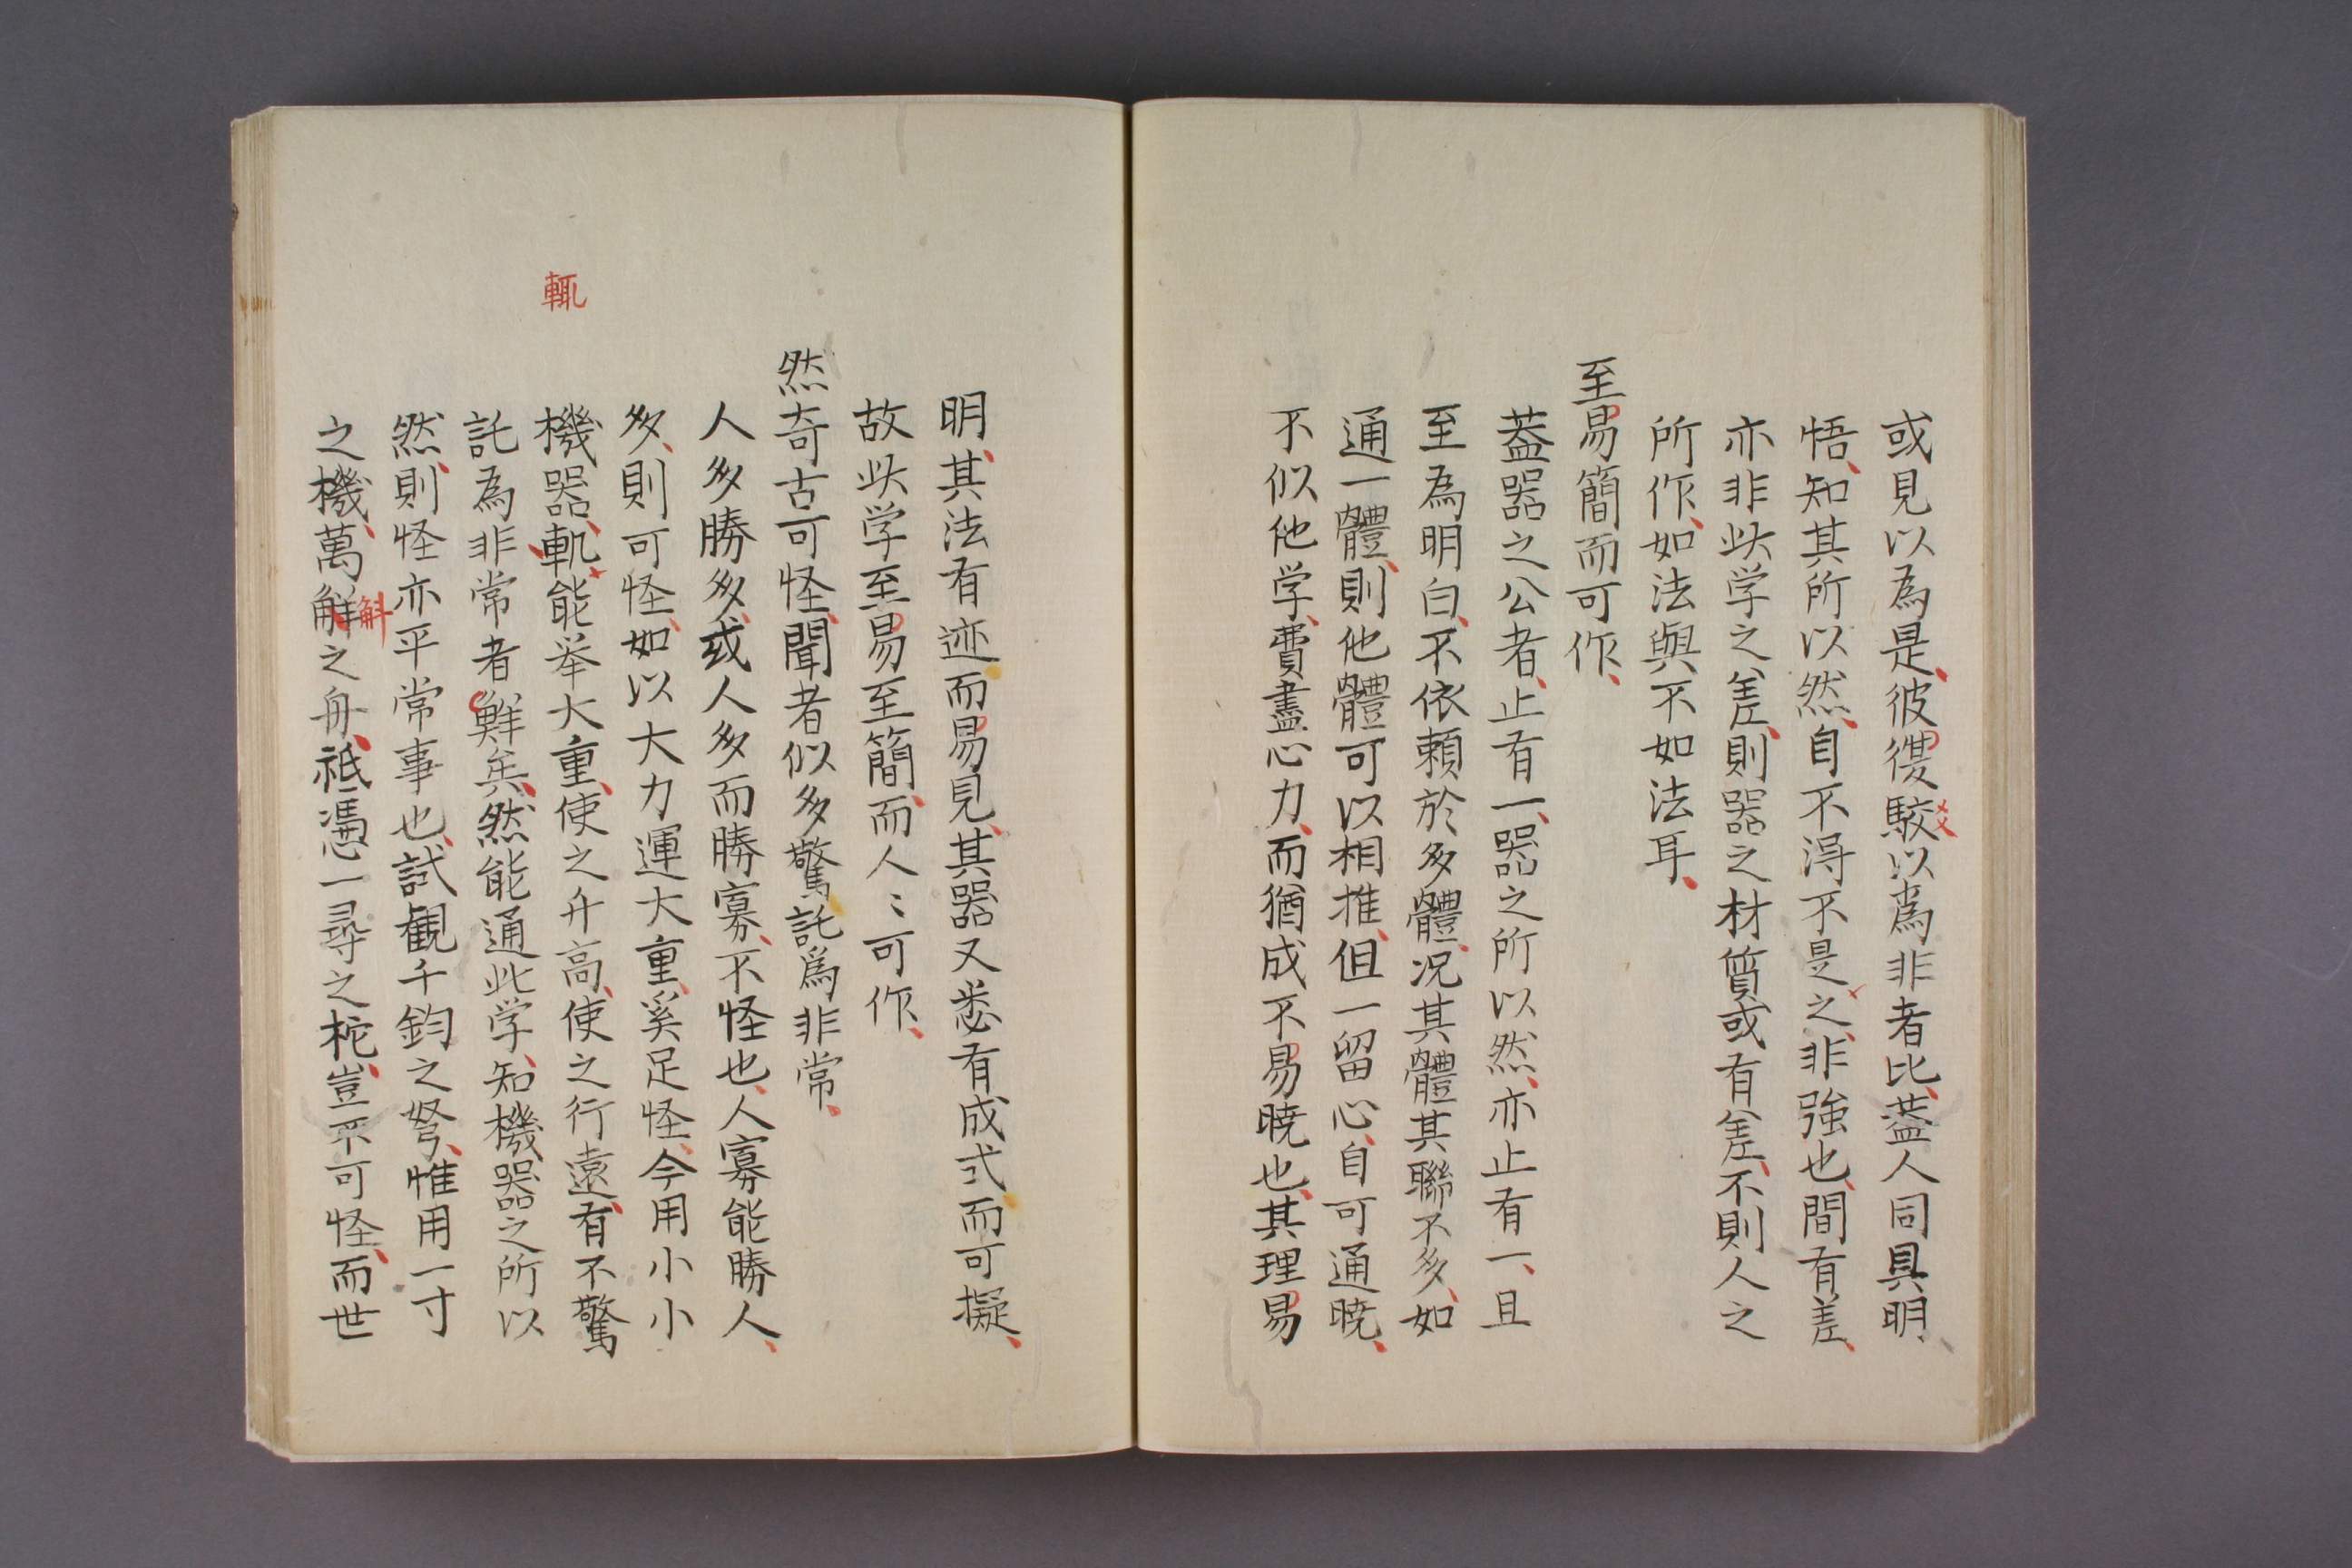 或見以為是彼復駁以為非者比蓋人同具明
悟知其所以然自不得不是之非強也間有差
亦非此学之差則器之材質或有差不則人之
所作如法與不如法耳
至易簡而可作
蓋器之公者止有一器之所以然亦止有一且
至為明白不依賴於多體况其體其聯不多如
通一體則他體可以相推但一留心自可通暁
不似他学費盡心力而猶成不易暁也其理易
明其法有迹而易見其器又悉有成式而可擬
故此学至易至簡而人〻可作
然奇古可怪聞者似多驚詫為非常
人多勝多或人多而勝寡不怪也人寡能勝人
多則可怪如以大力運大重奚足怪今用小小
輒
機器軏能举大重使之升高使之行遠有不驚
詫為非常者鮮矣然能通此学知機器之所以
然則怪亦平常事也試観千鈞之弩惟用一寸
斛
之機萬觧之舟祗憑一尋之柁豈不可怪而世